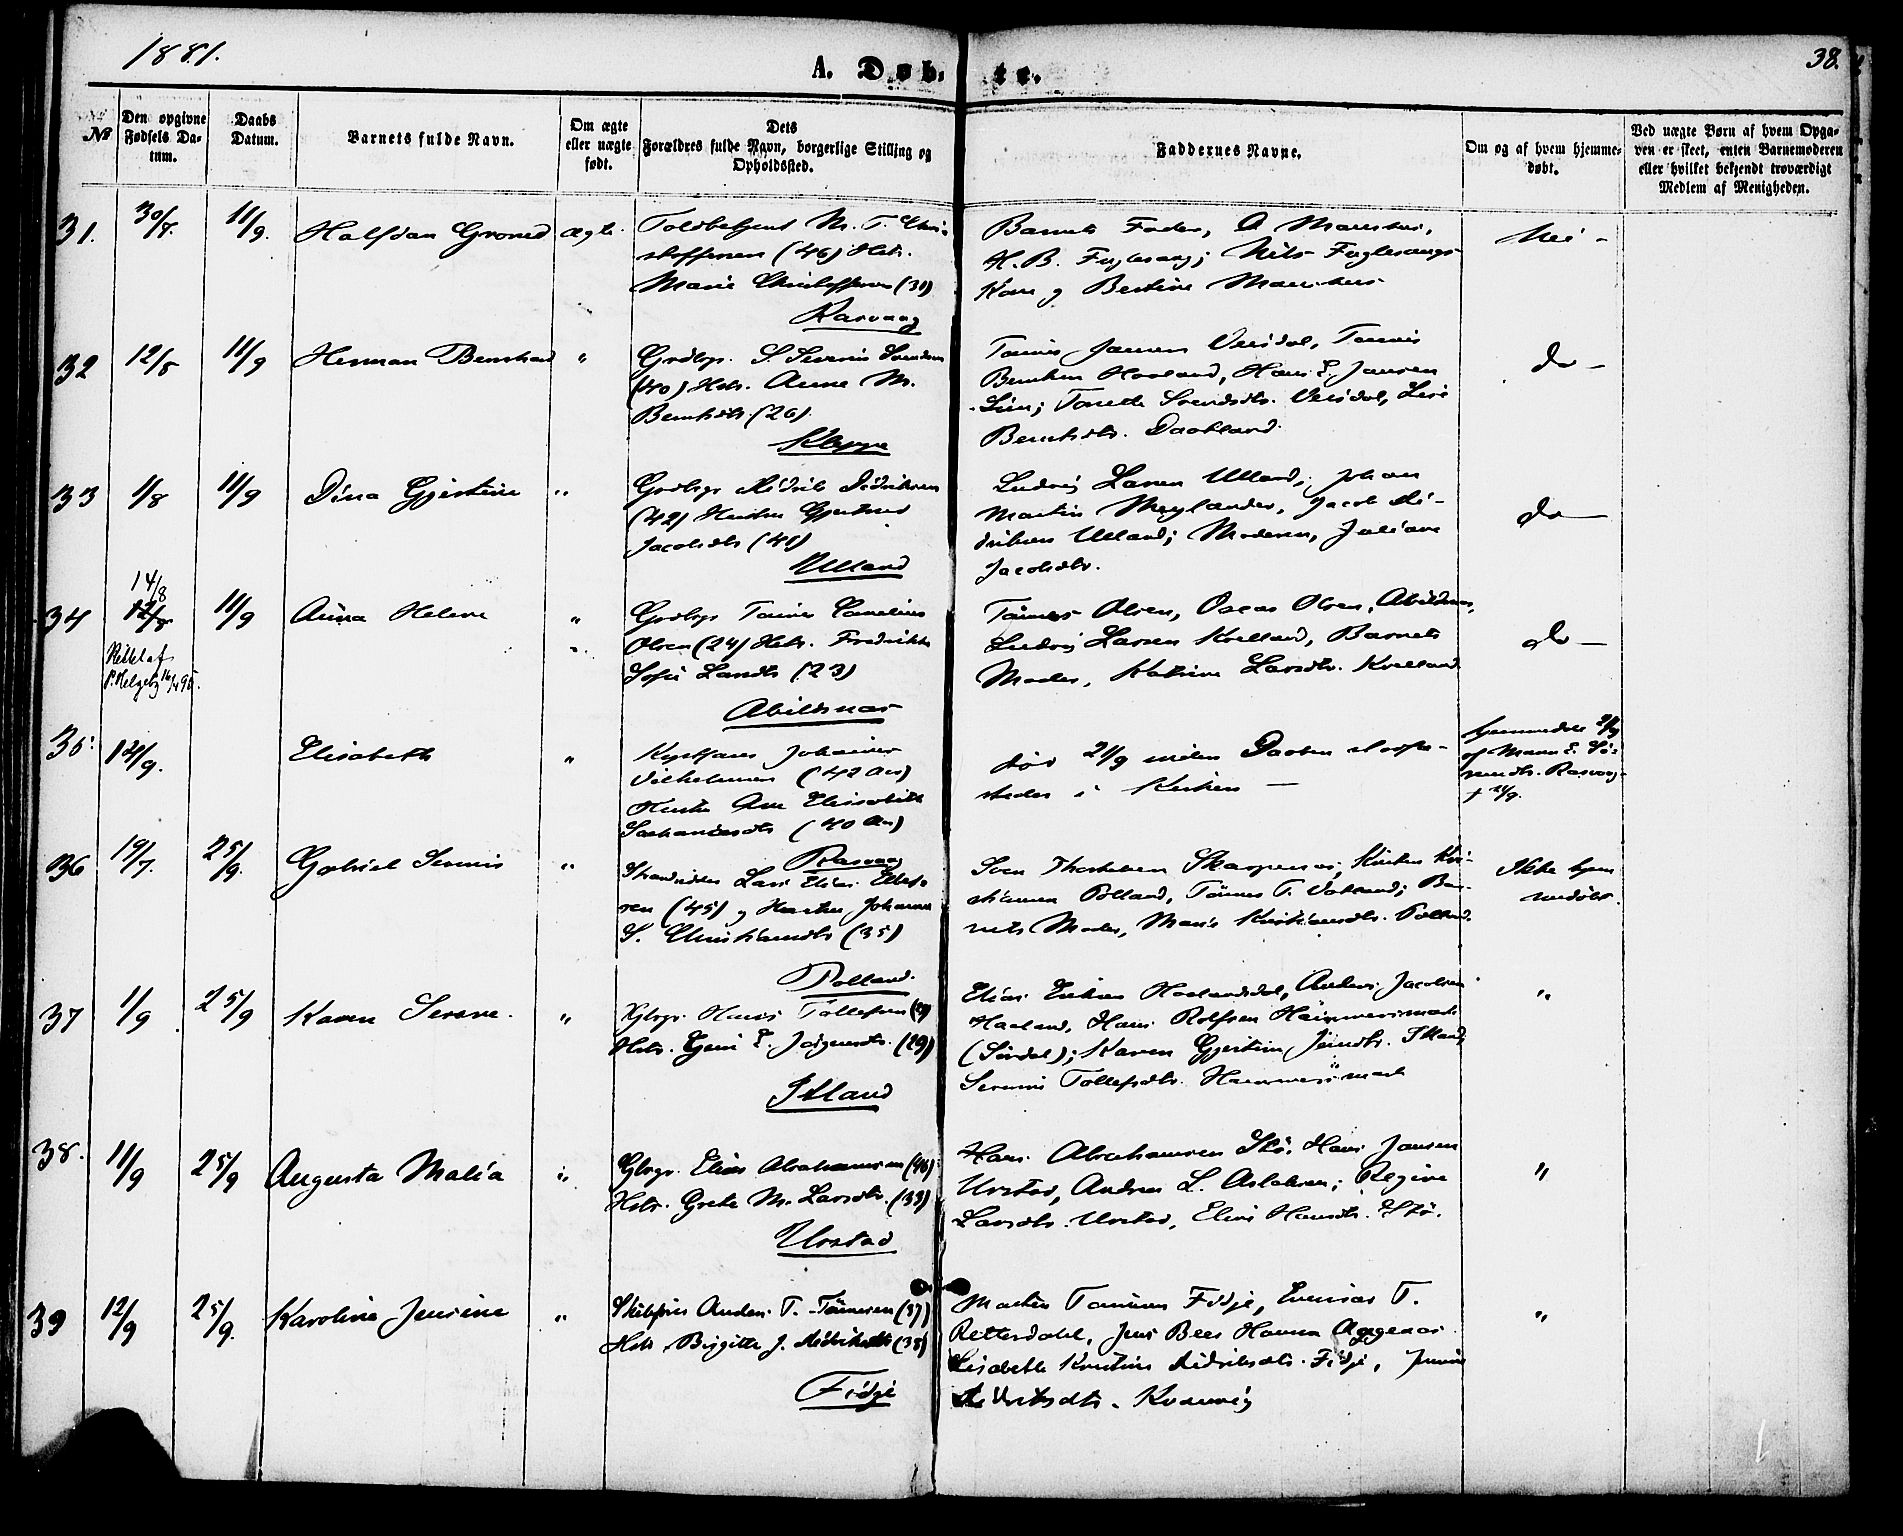 1881.
A. Døb- te.
38.
No
Den opgivne Fødsels Datum.
Daabs Datum.
Barnets fulde Navn.
Om ægte eller uægte født.
Dets Forældres fulde Navn, borgerlige Stilling og Opholdssted.
Faddernes Navne.
Om og af hvem hjemmedøbt.
Ved uægte Børn af hvem Opgaven er skeet, enten Barnemoderen eller hvilket bekjendt troværdigt Medlem af Menigheden.
31. 30/7. 11/9. Halfdan ægte
Toldbetjent M. T. Chri-
stoffersen (46) Hstr.
Marie Christoffersen (31)
Rasvaag
Barnets Fader,
H. B. Fuglesang; Nils Fuglesangs
Kone og Bertine
Nei -
32 12/8 11/9 Herman Bernhard "
Grdbgr. S. Severin Svendsen
(40) Hstr. Anne M.
Berntsdtr. (26).
Kleppe
Tønnes Jansen Versdal, Tønnes
Berntsen Haaland, Hans E. Jansen
Lien; Tonette Svendsdtr. Versdal, Lise
Berntsdtr. Daatland.
do -
33 1/8 11/9 Dina Gjertine "
Grdbgr Didrik Didriksen
(42) Hustru Gjertine
Jacobsdtr (41)
Ulland
Ludvig Larsen Ulland, Johan
Martin Jacob Di-
driksen Ulland; Moderen, Juliane
Jacobsdtr.
do
34 14/8 12/8 11/9 Anna Helene "
Rettet af
P. Helgeby
Grdbgr Tønnes Cornelius
Olsen (24) Hstr. Fredrikke
Sofie Larsdtr (23)
Abildsnæs
Tønnes Olsen, Oscar Olsen, Abildsnæs,
Ludvig Larsen Kvelland, Barnets
Moder, Katrine Larsdtr. Kvelland
do
35. 12/9. Elisabeth "
Johannes
Vilhelmsen (42 Aar)
Hustru Ane Elisabeth
Zachariasdtr (40 Aar)
Rasvaag
død 21/9 inden Daaben stadfæ-
stedes i Kirken -
hjemmedøbt 21/9
af Maren E. Sø-
rensdtr. Rasvaag
† 21/9.
36 19/7. 25/9. Gabriel Severin "
Strandsidder Lars Elias Ellef-
sen (45) og Hustru Johanne
S. Christiansdtr (35)
Polland.
Sven Thorkelsen Kristen Kri-
stiansen Polland, Tønnes T. Bar-
nets Moder, Marie Kristiansdtr. Polland.
Ikke hjem
medøbt.
37 1/9 25/9 Karen Serene. "
Gbrgr. Hans Tollefsen
Hstr. E. Jørgensdtr. (29)
Itland
Elias Eriksen Haalandsdal, Anders Jacobsen
Haaland, Hans Rolfsen Hammersmark
(Sirdal); Karen Gjertine Itland,
Serine Tollefsdtr. Hammersmark
"
38. 11/9 25/9 Augusta Malia "
Gbrgr. Elias Abrahamsen (46)
Hstr. Grete M. Larsdtr. (33)
Urstad
Hans Abrahamsen Stø, Hans Jansen
Urstad, Andreas L. Aslaksen; Regine
Larsdtr. Urstad, Elise Hansdtr. Stø.
"
39 12/9 25/9. Karoline Jensine "
Anders T. Tønnesen (37)
Hstr. Birgitte J. Didriksdtr (35)
Fidje
Martin Tønnesen Fidje, Enevias T.
Rettersdahl, Jens Beer Hansen
Lisabeth Kristine Didriksdtr. Fidje,
Didriksdtr.
"